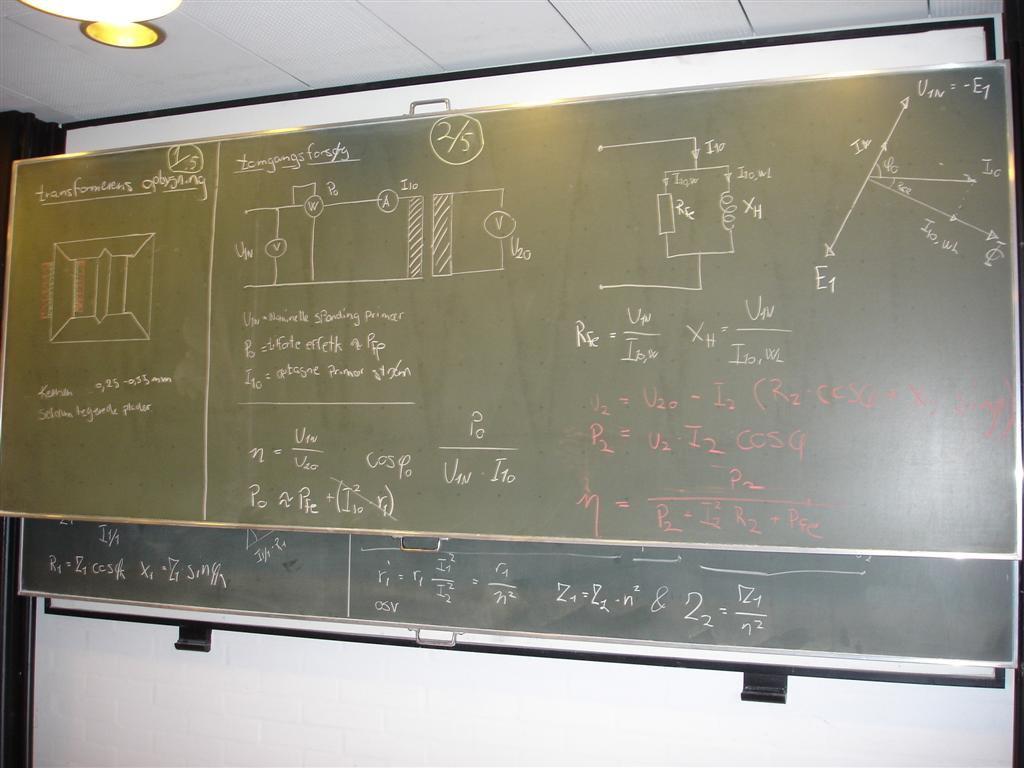 1/5
transformerens opbygning
Kernen 0,25-0,35 mm
2/5
tomgangsforsøg
P₀
W
A
I₁₀
U₁N
V
V
U₂₀
U₁N = Nominelle spænding primær
P₀ = tilførte effekt ≈ PFe
I₁₀ = optagne primær strøm
n = U₁N / U₂₀
cosφ₀
P₀ / U₁N · I₁₀
P₀ ≈ PFe + (I²₁₀ · r₁)
I₁₀
I₁₀,w
I₁₀,WL
RFe
XH
RFe = U₁N / I₁₀,w
XH = U₁N / I₁₀,WL
U₁N = -E₁
Iw
φ₀
I₀
I₁₀,WL
Φ
E₁
U₂ = U₂₀ - I₂ (R₂ · cosφ + X
P₂ = U₂ · I₂ cosφ
η = P₂ / P₂ + I₂² R₂ + PFe
R₁ = Z₁ cosφk X₁ = Z₁ sinφk
r₁' = r₁ I₁² / I₂² = r₁ / n²
osv
Z₁ = Z₂ · n² & Z₂ = Z₁ / n²